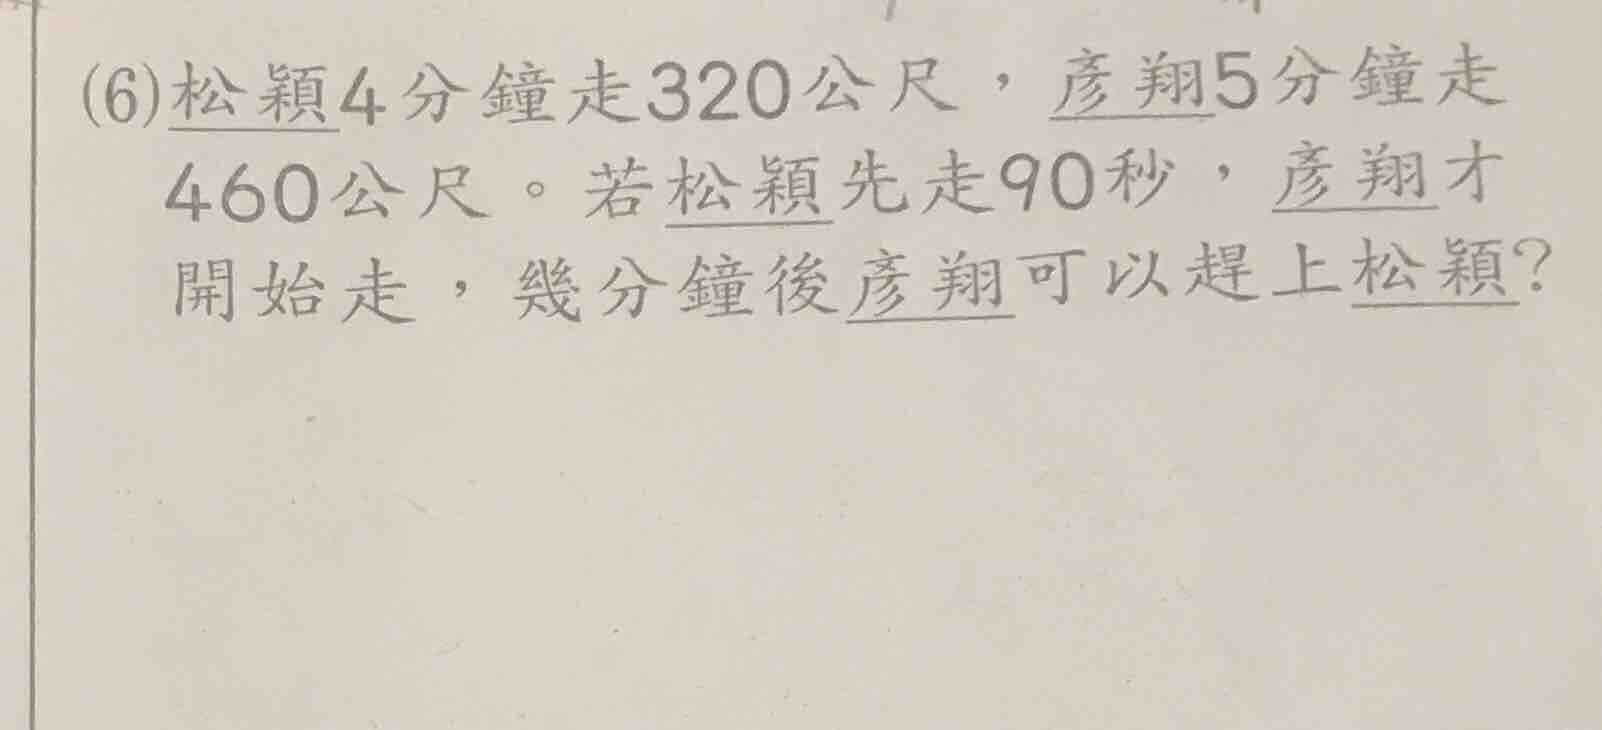 (6)松穎4分鐘走320公尺，彥翔5分鐘走
460公尺。若松穎先走90秒，彥翔才
開始走，幾分鐘後彥翔可以趕上松穎？